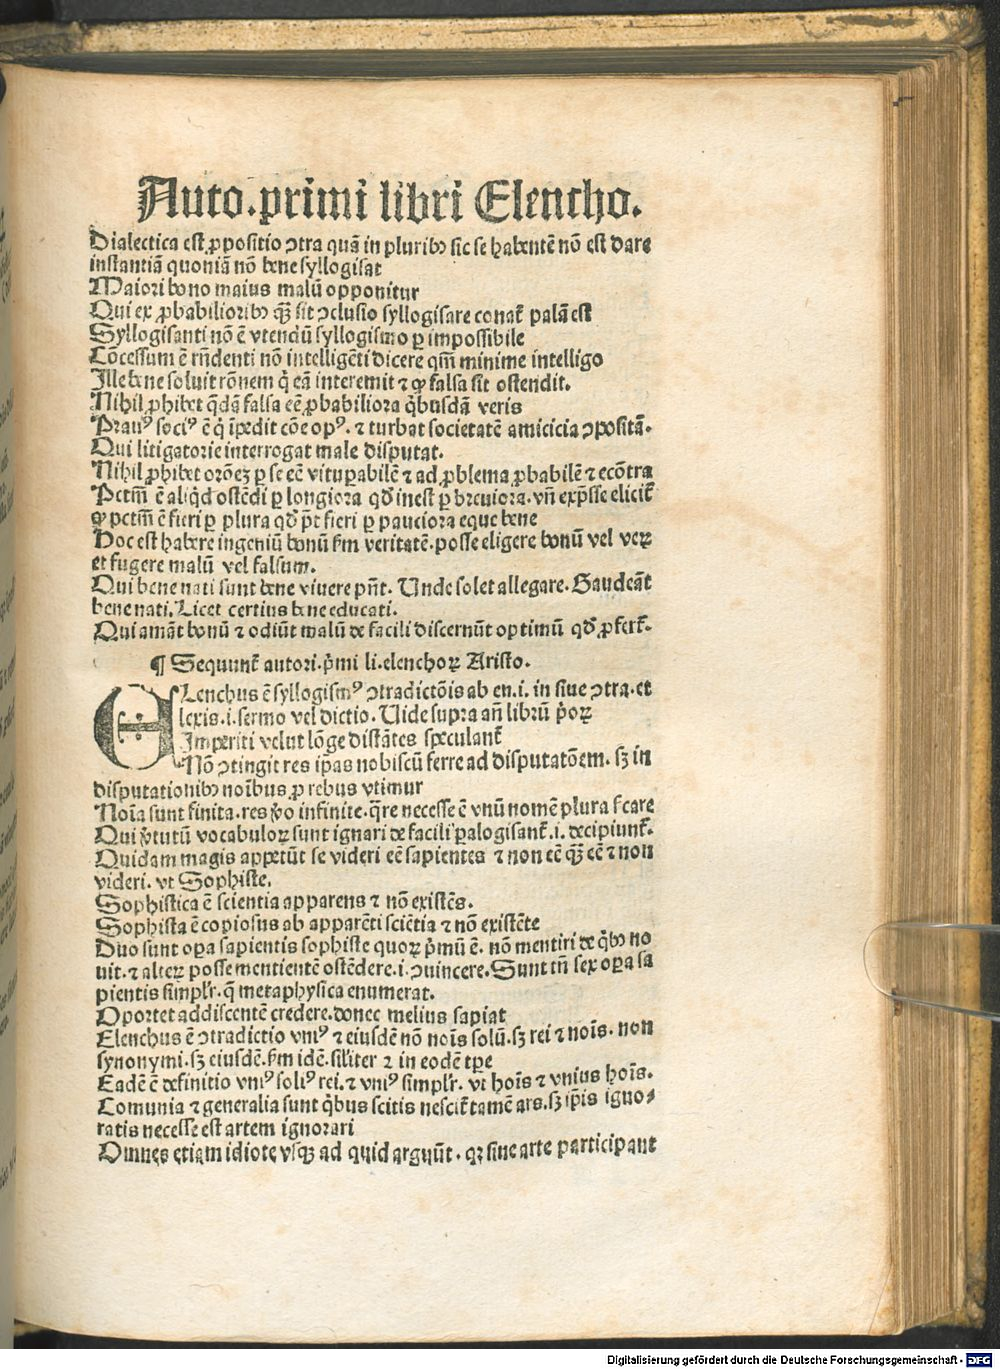 Auto. primi libri Elencho.
Dialectica est ꝓpositio ↄtra quã in pluribꝰ sic se habentẽ nõ est dare
instantiã quoniã nõ bene syllogisat
Maiori bono maius malũ opponitur
Qui ex ꝓbabilioribꝰ qꝫ̃ sit ↄclusio syllogisare conat᷑ palã est
Syllogisanti nõ ẽ vtendũ syllogismo ꝑ impossibile
Cõcessum ẽ rñdenti nõ intelligẽti dicere qm̃ minime intelligo
Ille bene soluit rõnem q̇ eã interemit ⁊ ꝙ falsa sit ostendit.
Nihil ꝓhibet q̇dã falsa eẽ ꝓbabiliora q̇busdã veris
Prauꝰ sociꝰ ẽ q̇ ip̃edit cõe opꝰ. ⁊ turbat societatẽ amicicia ↄpositã.
Qui litigatorie interrogat male disputat.
Nihil ꝓhibet orõeꝫ ꝑ se eẽ vituꝑabilẽ ⁊ ad ꝓblema ꝓbabilẽ ⁊ ecõtra
Pctm̃ ẽ aliq̇d ostẽdi ꝑ longiora qd̕ inest ꝑ breuiora. vñ exp̃sse elicit᷑
ꝙ pctm̃ ẽ fieri ꝑ plura qd̕ p̃t fieri ꝑ pauciora eque bene
Hoc est habere ingeniũ bonũ ẜm veritatẽ. posse eligere bonũ vel veꝝ
et fugere malũ vel falsum.
Qui bene nati sunt bene viuere pñt. Unde solet allegare. Gaudeãt
bene nati. Licet certius bene educati.
Qui amãt bonũ ⁊ odiũt malũ de facili discernũt optimũ qd̕ ꝓfert᷑.
¶ Sequunt᷑ autori. p̃mi li. elenchoꝝ Aristo.
ELenchus ẽ syllogismꝰ ↄtradictõis ab en. i. in siue ↄtra. et
lexis. i. sermo vel dictio. Uide supra añ librũ p̃oꝝ
Imperiti velut lõge distãtes speculant᷑
Nõ ↄtingit res ip̃as nobiscũ ferre ad disputatõem. sꝫ in
disputationibꝰ noĩbus ꝓ rebus vtimur
Noĩa sunt finita. res ꝟo infinite. q̃re necesse ẽ vnũ nomẽ plura ẜcare
Qui ꝟtutũ vocabuloꝝ sunt ignari de facili ꝑalogisant᷑. i. decipiunt᷑.
Quidam magis appetũt se videri eẽ sapientes ⁊ non eẽ qꝫ̃ eẽ ⁊ non
videri. vt Sophiste.
Sophistica ẽ scientia apparens ⁊ nõ existẽs.
Sophista ẽ copiosus ab apparẽti sciẽtia ⁊ nõ existẽte
Duo sunt oꝑa sapientis sophiste quoꝝ p̃mũ ẽ. nõ mentiri de q̇bꝰ no
uit. ⁊ alteꝝ posse mentientẽ ostẽdere. i. ↄuincere. Sunt tñ sex oꝑa sa
pientis simpl̕r. q̃ metaphysica enumerat.
Oportet addiscentẽ credere. donec melius sapiat
Elenchus ẽ ↄtradictio vniꝰ ⁊ eiusdẽ nõ noĩs solũ. sꝫ rei ⁊ noĩs. non
synonymi. sꝫ eiusdẽ. ẜm idẽ. sil̕iter ⁊ in eodẽ tp̃e
Eadẽ ẽ definitio vniꝰ soliꝰ rei. ⁊ vniꝰ simpl̕r. vt hoĩs ⁊ vnius hoĩs.
Comunia ⁊ generalia sunt q̇bus scitis nescit᷑ tamẽ ars. sꝫ ip̃is igno⸗
ratis necesse est artem ignorari
Omnes etiam idiote vsqꝫ ad quid arguũt. qꝛ sine arte participant
Digitalisierung gefördert durch die Deutsche Forschungsgemeinschaft - DFG